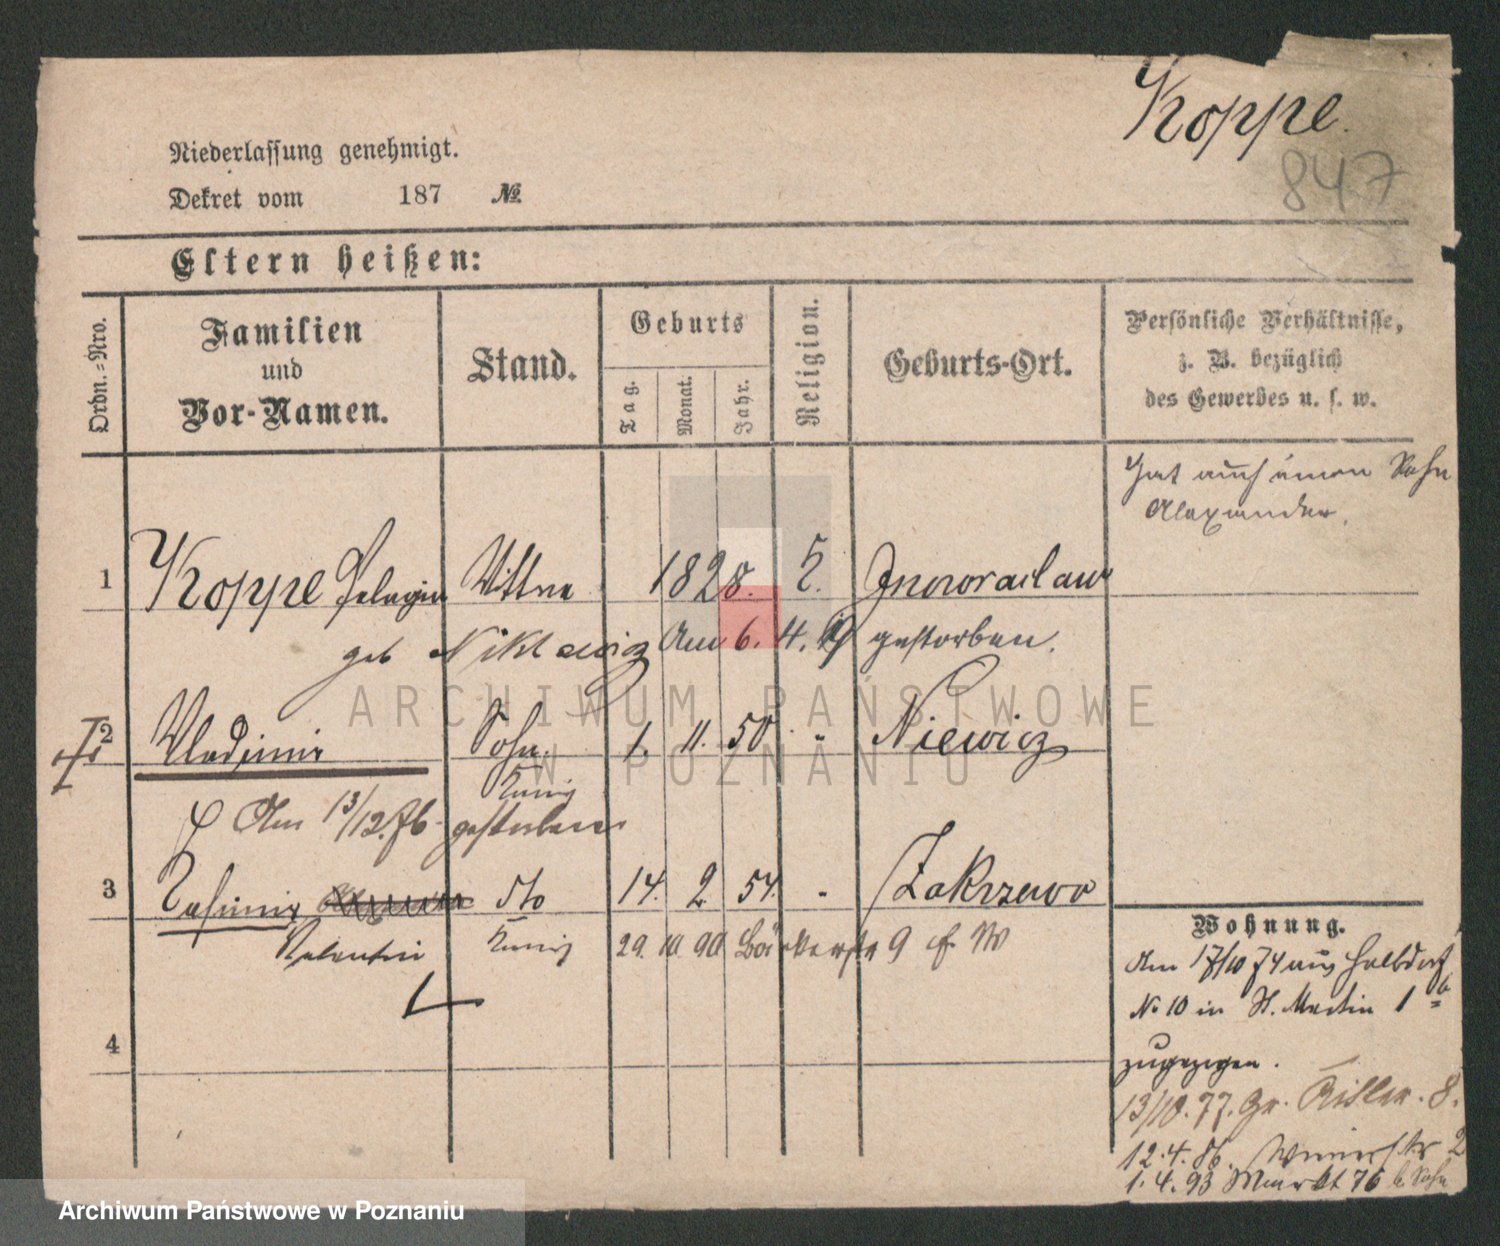 Koppe.
847
Niederlassung genehmigt.
Dekret vom 187 №
Eltern heißen:
Ordn.=Nro.
Familien
und
Vor-Namen.
Stand.
Geburts
Tag.
Monat.
Jahr.
Religion.
Geburts-Ort.
Persönliche Verhältnisse,
z. B. bezüglich
des Gewerbes u. s. w.
Hat auch einen Sohn
Alexander.
1 Koppe Pelagia Wittwe 1828. Inowraclaw
geb Am 6. 4. gestorben.
2 Wladimir Sohn. 1. 11. 50 "
Am 13/12.76 gestorben
3 Casimir dto 14. 2 54. " Zakrzewo
Valentin 29. 10. 90 Bäckerstr 9
4
Wohnung.
Am 17/10 74 aus Halbdorf
No 10 in St. Martin 1
zugezogen.
13/10. 77. Gr. Ritter. 8.
12. 4. 86. 2
1. 4. 93 76 b Sohn
ARCHIWUM PAŃSTWOWE
W POZNANIU
Archiwum Państwowe w Poznaniu